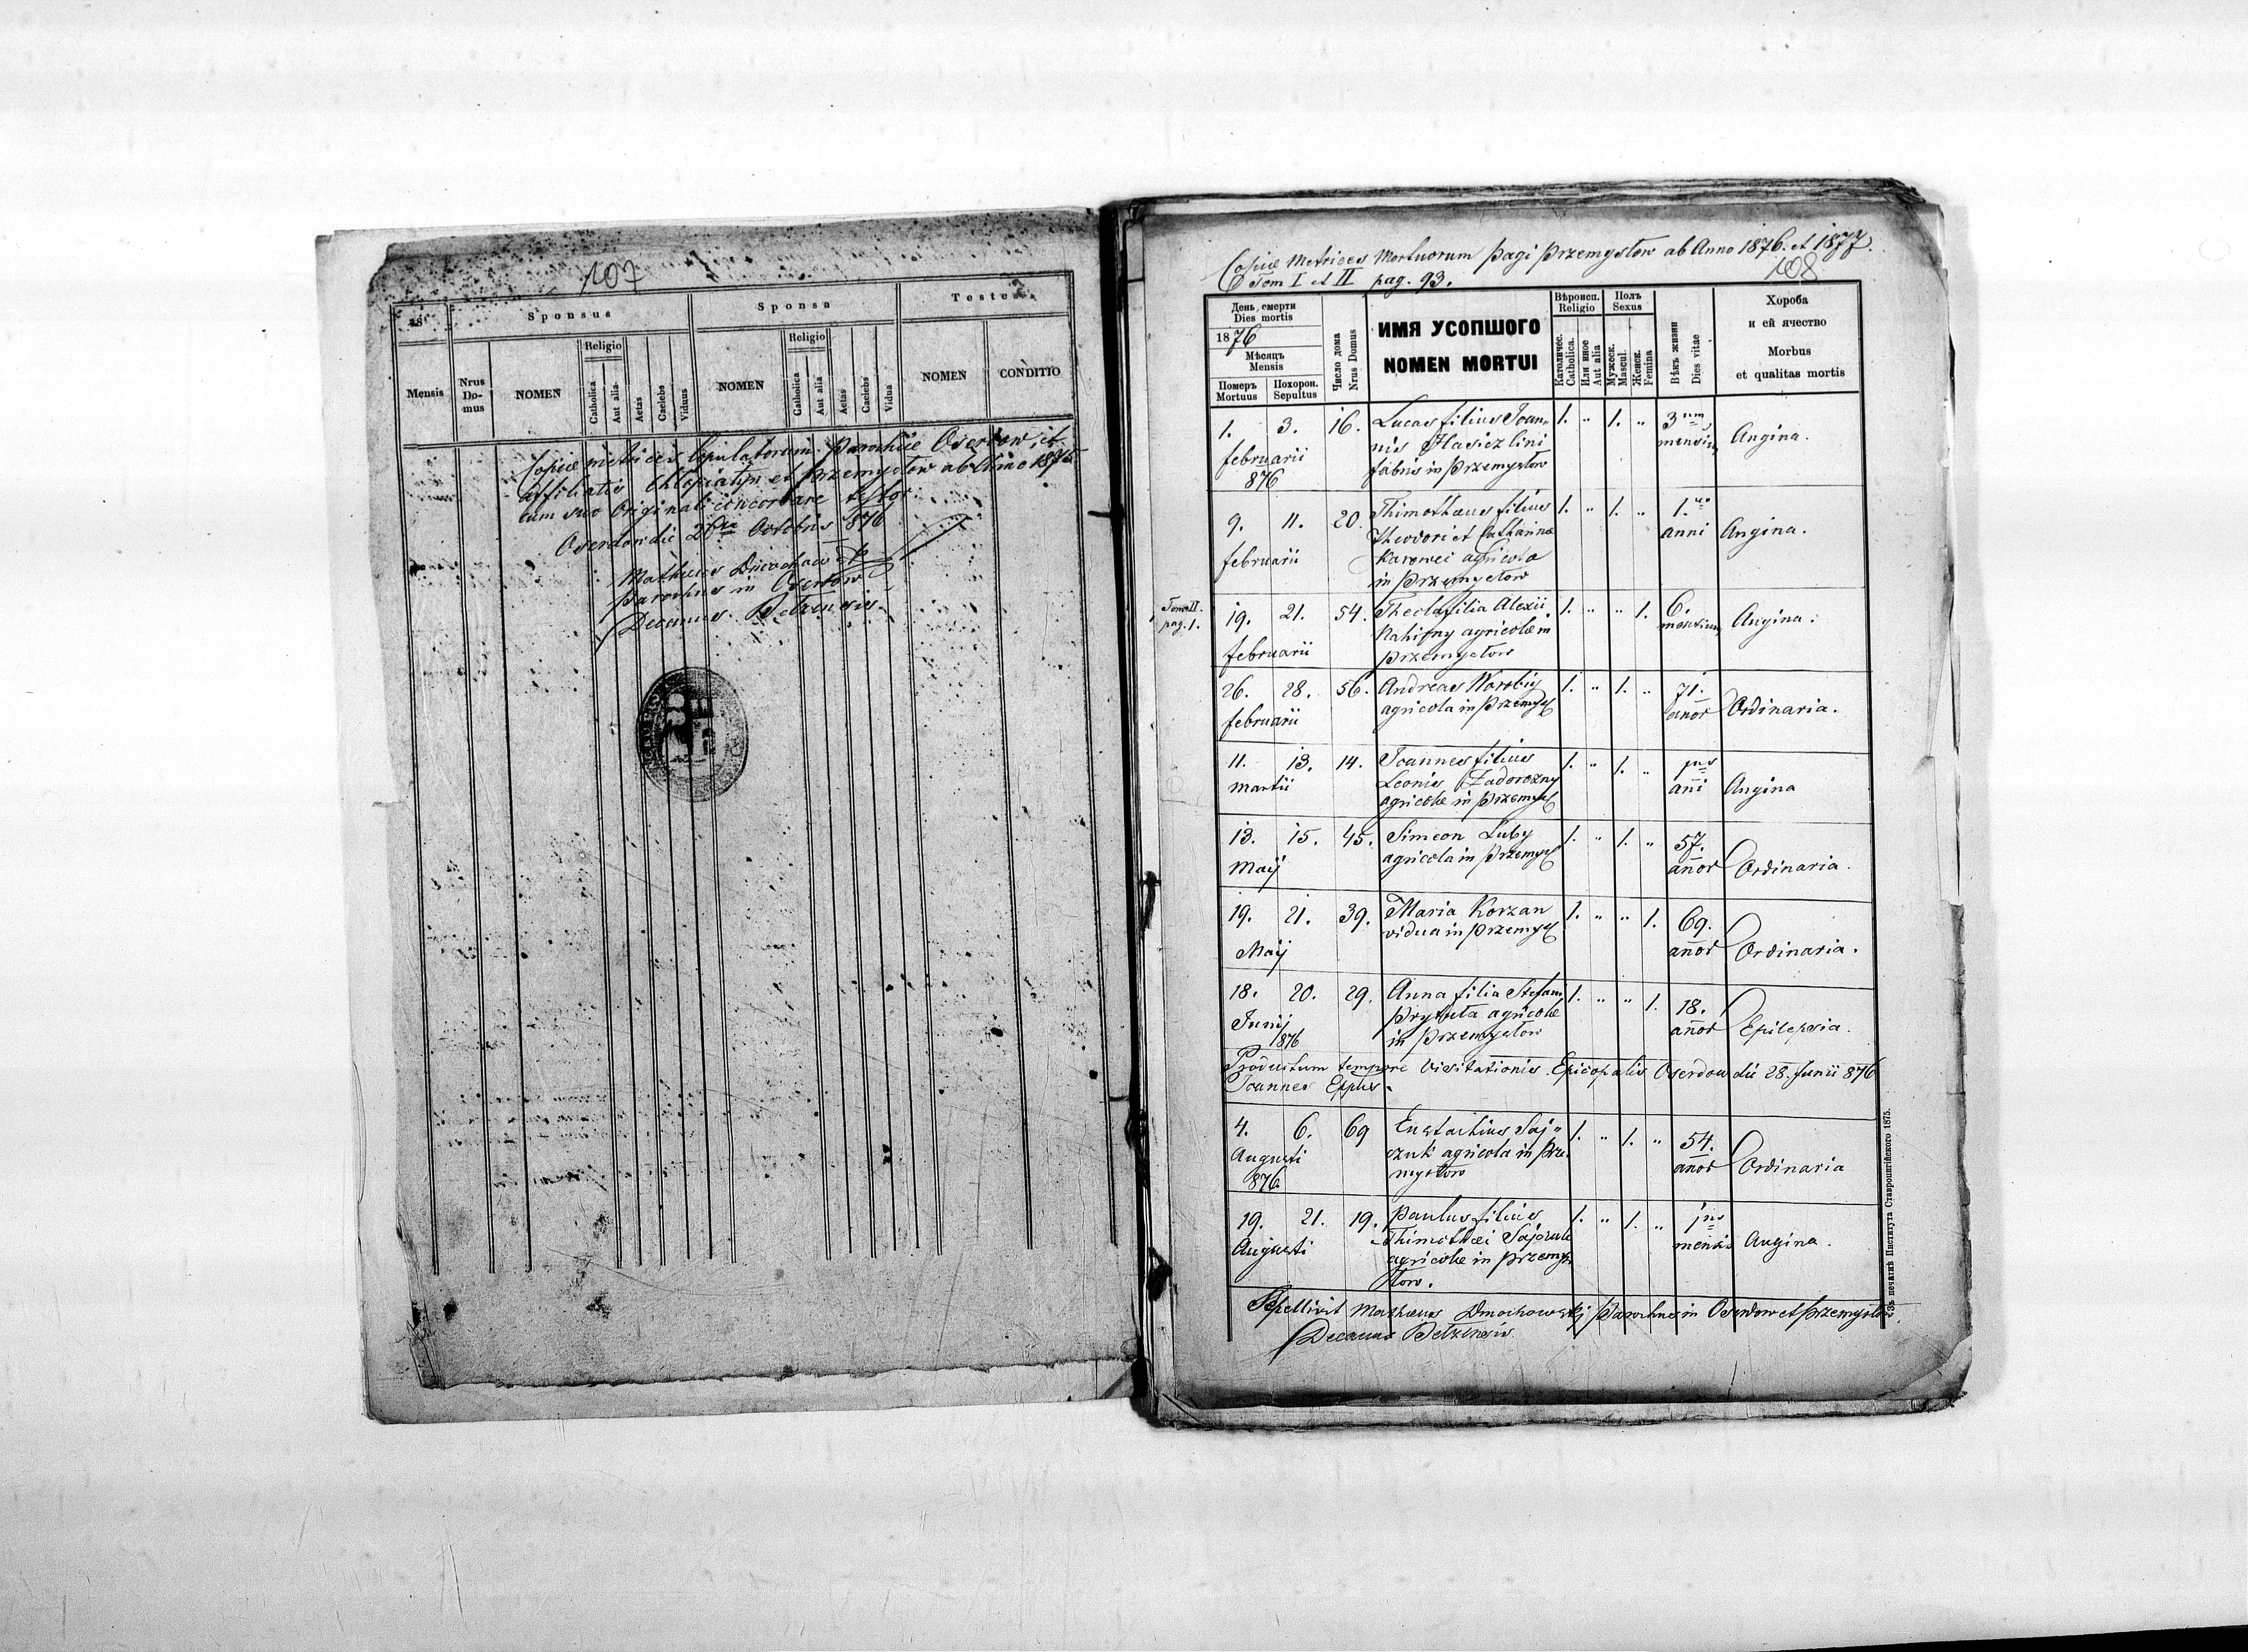 107
Sponsus
Sponsa
Testes
Mensis
Nrus Domus
NOMEN
Religio
Catholica
Aut alia
Aetas
Caelebs
Viduus
NOMEN
Religio
Catholica
Aut alia
Aetas
Caelebs
Vidua
NOMEN
CONDITIO
Copiae metrices Copulatorum Parochiae Oserdow, et
affiliatis Chlopiatyn et Przemysłow ab Anno 1875
cum suo Originali concordare testor
Oserdow die Octobris 1876
Parochus in Oserdow
Decanus Belzensis
Copiae Metrices Mortuorum pagi Przemysłow ab Anno 1876. et 1877.
Tom I et II pag. 93.
108
День смерти
Dies mortis
1876
Мѣсяць
Mensis
Померъ
Mortuus
Похорон.
Sepultus
Число дома
Nrus Domus
ИМЯ УСОПШОГО
NOMEN MORTUI
Вѣроисп.
Religio
Католичес.
Catholica.
Или иное
Aut alia
Полъ
Sexus
Мужеск.
Mascul.
Женск.
Femina
Вѣкъ жизни
Dies vitae
Хороба
и ей ячество
Morbus
et qualitas mortis
1. 3. 16. Lucas filius Joan- 1. " 1. " 3 um
februarii nis fabris in Przemysłow mensium Angina.
876
9. 11. 20. Thimothaeus filius 1. " 1. " 1.
Theodori et Catharinae anni Angina.
februarii agricola
in Przemysłow
Tom II.
pag. 1.
19. 21. 54. Thecla filia Alexii 1. " " 1. 6.
agricolae in mensium Angina.
februarii Przemysłow
26. 28. 56. Andreas Worobiy 1. " 1. " 71.
februarii agricola in Przemysł anor Ordinaria.
11. 13. 14. Joannes filius 1. " 1. "
martii Leonis Zadorozny ani Angina
agricolae in Przemysł
13. 15. 45. Simeon Luby 1. " 1. " 57.
Maij agricola in Przemysł anor Ordinaria.
19. 21. 39. Maria Korzan 1. " " 1. 69.
Maij vidua in Przemysł anor Ordinaria.
18. 20. 29. Anna filia Stefani 1. " " 1. 18.
Junij agricolae anor Epilepsia.
876 in Przemysłow
Productum tempore Visitationis Epicopalis Oserdow die 28. Junii 876
Joannes Eppus.
4. 6. 69 Eustachius Saj- 1. " 1. " 54.
Augusti czuk agricola in Prze anor Ordinaria
876 mysłow
19. 21. 19. Paulus filius 1. " 1. "
Augusti Thimothei Sajczuk mensis Angina.
agricolae in Przemys
łow.
Sepellivit Mathaeus Dmochowskij Parochus in Oserdow et Przemysłow.
Decanus Belzensis
Зъ печатнѣ Института Ставропигійского 1875.